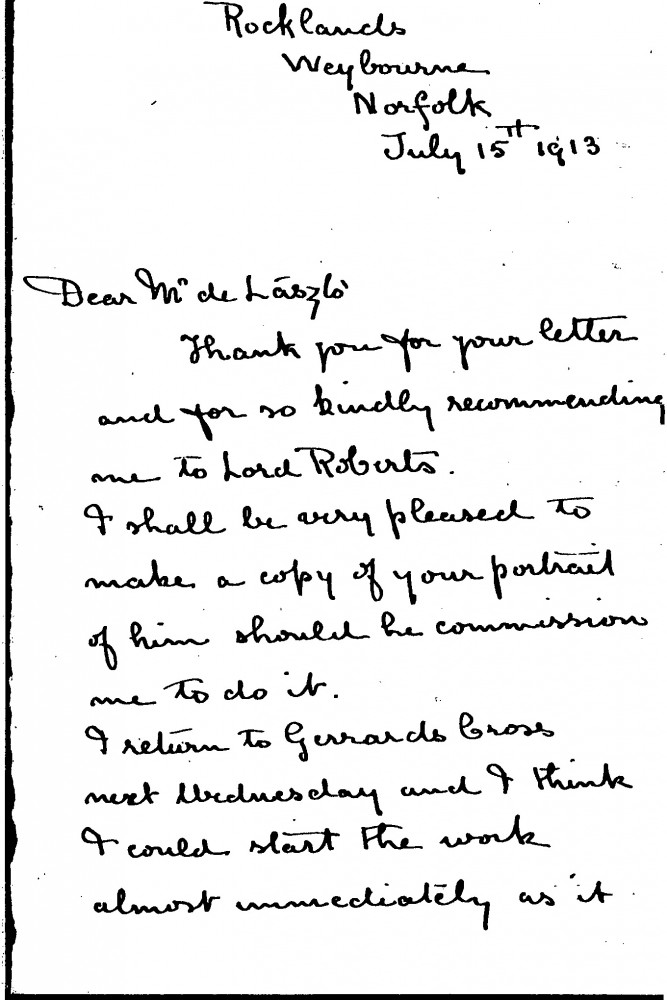 Rocklands
Weybourne
Norfolk
July 15th 1913
Dear Mr de László
Thank you for your letter
and for so kindly recommending
me to Lord Roberts.
I shall be very pleased to
make a copy of your portrait
of him should he commission
me to do it.
I return to Gerrards Cross
next Wednesday and I think
I could start the work
almost immediately as it